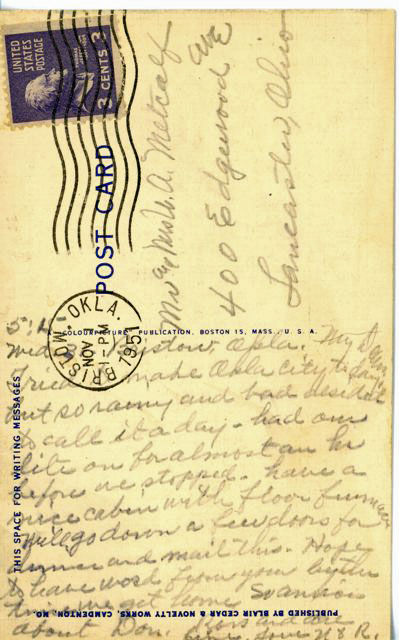 UNITED
STATES
POSTAGE
3 CENTS 3
POST CARD
Mr & Mrs W. A. Metcalf
400 Edgewood Ave
Lancaster, Ohio
BRISTOW OKLA.
NOV
1 - PM
1951
A "COLOURPICTURE" PUBLICATION, BOSTON 15, MASS., U. S. A.
THIS SPACE FOR WRITING MESSAGES
Bristow, Okla.
Tried make Okla city to day
but so rainy and bad decided
to call it a day - had our
lite on for almost an hr
before we stopped. have a
nice cabin with floor furnace
will go down a few doors for
and mail this. Hope
to have word from you after
we get home
about Don.
PUBLISHED BY BLAIR CEDAR & NOVELTY WORKS, CAMDENTON, MO.